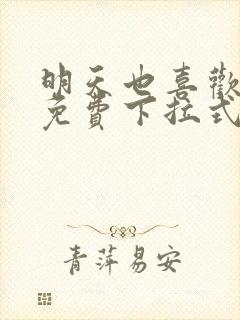 明天也喜歡
免費下拉式
青萍易安